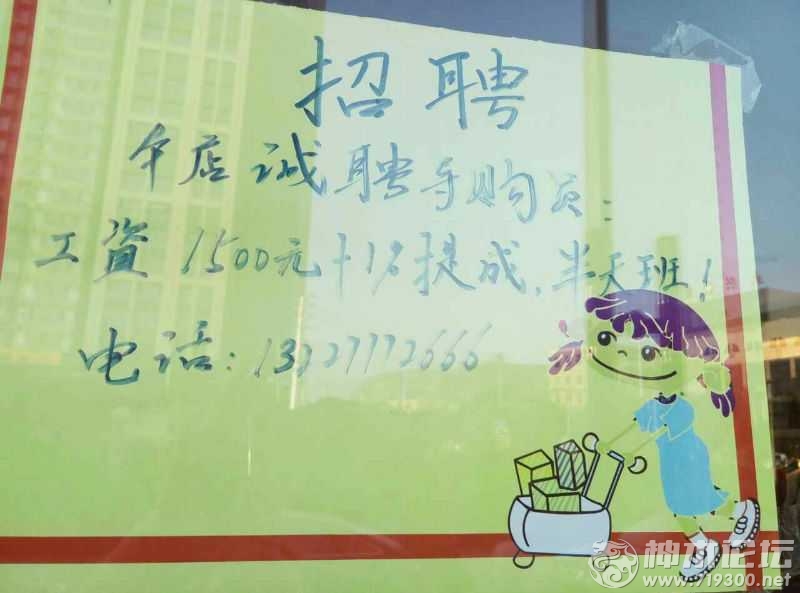 招聘
本店诚聘导购员:
工资1500元+1%提成,半天班!
电话:13227772666
神木论坛
www.719300.net